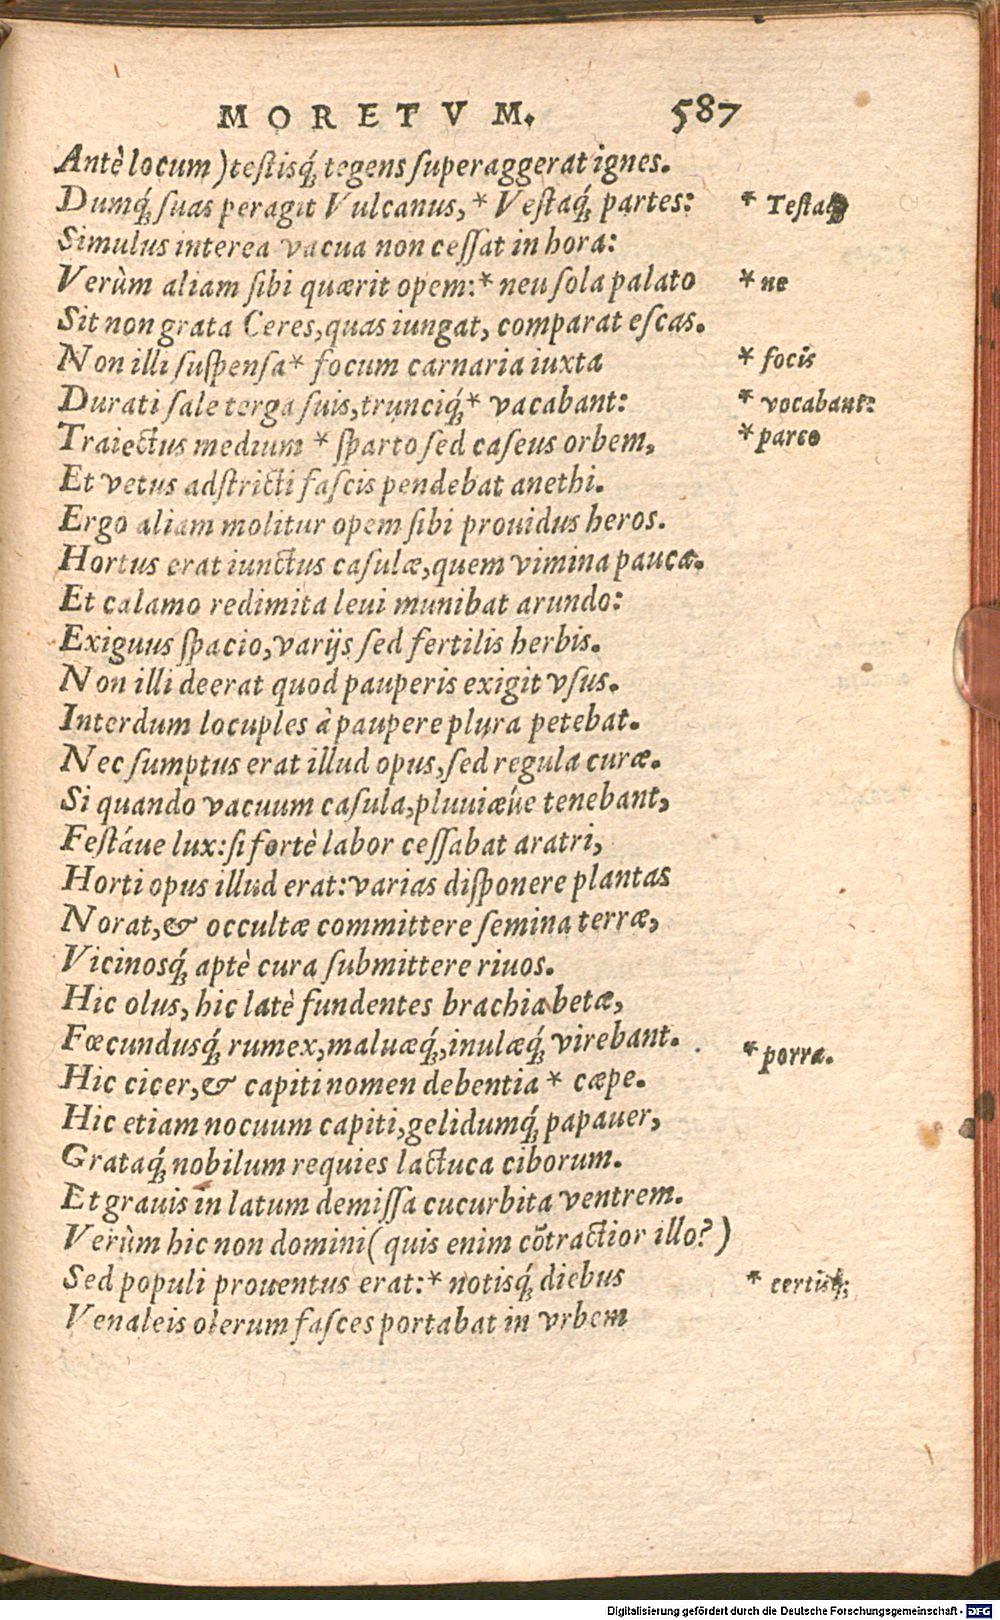 MORETVM. 587
Antè locum) testisq́; tegens superaggerat ignes.
Dumq́; suas peragit Vulcanus, * Vestaq́; partes: * Testaq́;
Simulus interea vacua non cessat in hora:
Verùm aliam sibi quærit opem: * neu sola palato * ne
Sit non grata Ceres, quas iungat, comparat escas.
Non illi suspensa * focum carnaria iuxta * focis
Durati sale terga suis, trunciq́; * vacabant: * vocabant:
Traiectus medium * sparto sed caseus orbem, * parco
Et vetus adstricti fascis pendebat anethi.
Ergo aliam molitur opem sibi prouidus heros.
Hortus erat iunctus casulæ, quem vimina pauca.
Et calamo redimita leui munibat arundo:
Exiguus spacio, varijs sed fertilis herbis.
Non illi deerat quod pauperis exigit vsus.
Interdum locuples à paupere plura petebat.
Nec sumptus erat illud opus, sed regula curæ.
Si quando vacuum casula, pluuiæúe tenebant,
Festáue lux: si fortè labor cessabat aratri,
Horti opus illud erat: varias disponere plantas
Norat, & occultæ committere semina terræ,
Vicinosq́; aptè cura submittere riuos.
Hic olus, hic latè fundentes brachia betæ,
Fœcundusq́; rumex, maluæq́;, inulæq́; virebant.
Hic cicer, & capiti nomen debentia * cæpe. * porra.
Hic etiam nocuum capiti, gelidumq́; papauer,
Grataq́; nobilum requies lactuca ciborum.
Et grauis in latum demissa cucurbita ventrem.
Verùm hic non domini (quis enim cõtractior illo?)
Sed populi prouentus erat: * notisq́; diebus * certisq́;
Venaleis olerum fasces portabat in vrbem
Digitalisierung gefördert durch die Deutsche Forschungsgemeinschaft - DFG